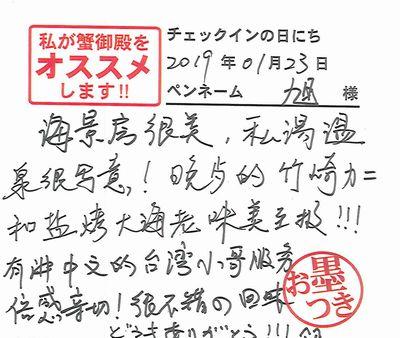 私が蟹御殿を
オススメ
します!!
チェックインの日にち
2019年01月23日
ペンネーム 旭 様
海景房很美,私湯温
泉很写意!晩歺的竹崎カニ
和盐烤大海老味美至极!!!
有講中文的台湾小哥服务
倍感亲切!很不錯的回味
お墨つき
どうもありがとう!!!